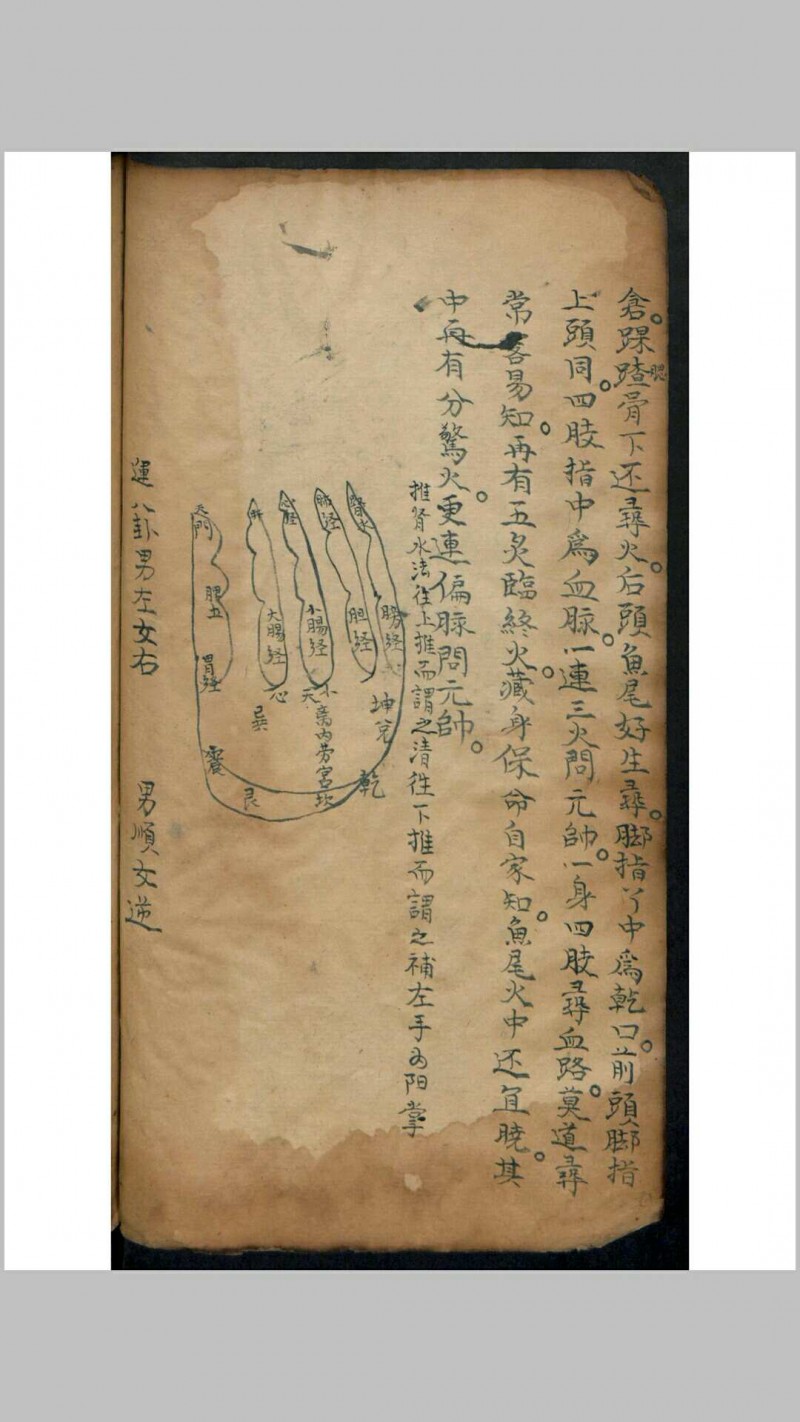 倉踝蹅骨下还尋火后頭魚尾好生尋脚指丫中為乾口前頭脚指
腮
上頭同四肢指中為血脉一連三火問元帥一身四肢尋血路莫道尋
常容易知再有五炙臨終火藏身保命自家知魚尾火中还宜曉其
中再有分驚火更連偏脉問元帥
推肾水法往上推而謂之清往下推而謂之補左手为阳掌
肾水
膀経
肺経
胆経
心経
小腸経
肝
大腸経
天門
脾土
胃経
坤兌
乾
小天心
内劳宮坎
巽
艮
震
運八卦男左女右
男順女逆